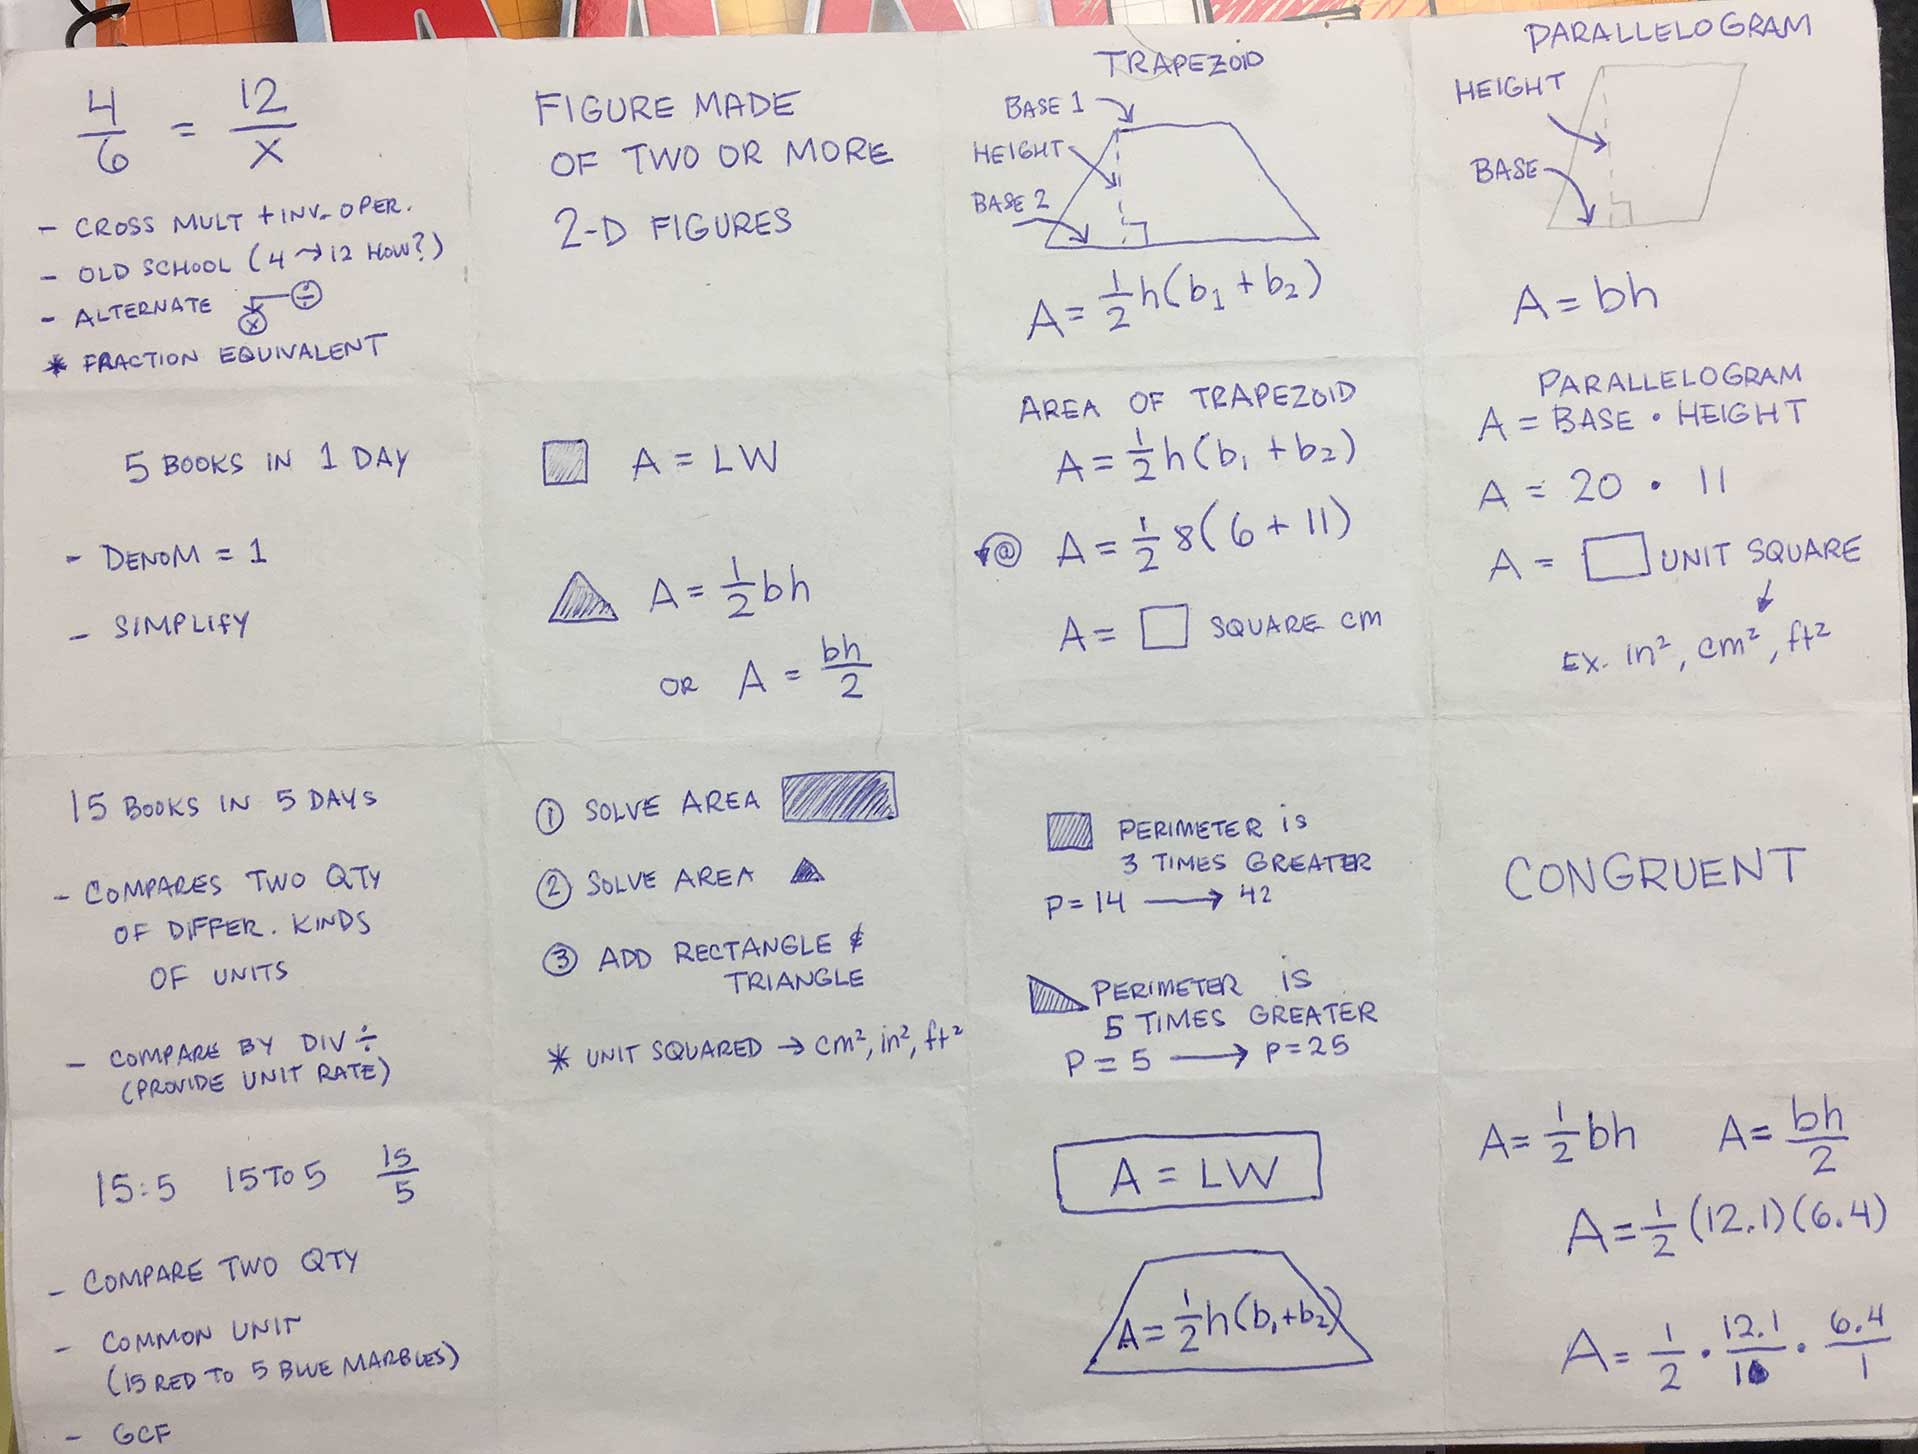 4/6 = 12/x
- CROSS MULT + INV. OPER.
- OLD SCHOOL (4 → 12 HOW?)
- ALTERNATE ÷ x
* FRACTION EQUIVALENT
5 BOOKS IN 1 DAY
- DENOM = 1
- SIMPLIFY
15 BOOKS IN 5 DAYS
- COMPARES TWO QTY
OF DIFFER. KINDS
OF UNITS
- COMPARE BY DIV ÷
(PROVIDE UNIT RATE)
15:5 15 TO 5 15/5
- COMPARE TWO QTY
- COMMON UNIT
(15 RED TO 5 BLUE MARBLES)
- GCF
FIGURE MADE
OF TWO OR MORE
2-D FIGURES
A = LW
A = 1/2 bh
OR A = bh/2
① SOLVE AREA
② SOLVE AREA
③ ADD RECTANGLE &
TRIANGLE
* UNIT SQUARED → cm², in², ft²
TRAPEZOID
BASE 1
HEIGHT
BASE 2
A = 1/2 h(b₁ + b₂)
AREA OF TRAPEZOID
A = 1/2 h(b₁ + b₂)
@ A = 1/2 8(6 + 11)
A = □ SQUARE cm
PERIMETER is
3 TIMES GREATER
P = 14 → 42
PERIMETER is
5 TIMES GREATER
P = 5 → P = 25
A = LW
A = 1/2 h(b₁ + b₂)
PARALLELOGRAM
HEIGHT
BASE
A = bh
PARALLELOGRAM
A = BASE · HEIGHT
A = 20 · 11
A = □ UNIT SQUARE
EX. in², cm², ft²
CONGRUENT
A = 1/2 bh A = bh/2
A = 1/2 (12.1)(6.4)
A = 1/2 · 12.1/1 · 6.4/1